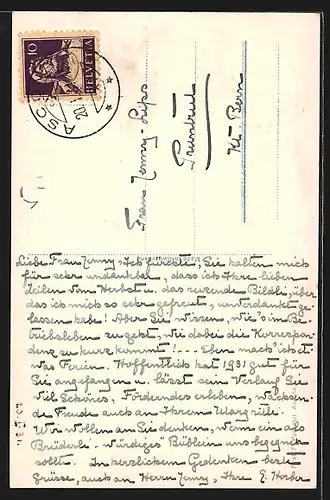 10
HELVETIA
ASCO
20.
Frau Jenny-Lips
Pruntrut
Kt. Bern
Liebe Frau Jenny, Ich fürchte, Sie halten mich
für sehr undankbar, dass ich Ihre lieben
Zeilen vom Herbst u. das reizende Bildli, über
das ich mich so sehr gefreut, unverdankt ge-
lassen habe! Aber Sie wissen, wie's im Be-
triebsleben zugeht, wie dabei die Korrespon-
denz zu kurz kommt! --- Eben mach' ich et-
was Ferien. Hoffentlich hat 1931 gut für
Sie angefangen u. lässt sein Verlauf Sie
viel Schönes, Förderndes erleben, wachsen-
de Freude auch an Ihrem
Wir wollen an Sie denken, wenn ein als
Brüderle würdiges Büblein uns begegnen
sollt. In herzlichem Gedenken beste
Grüsse, auch an Herrn Jenny, Ihre E.